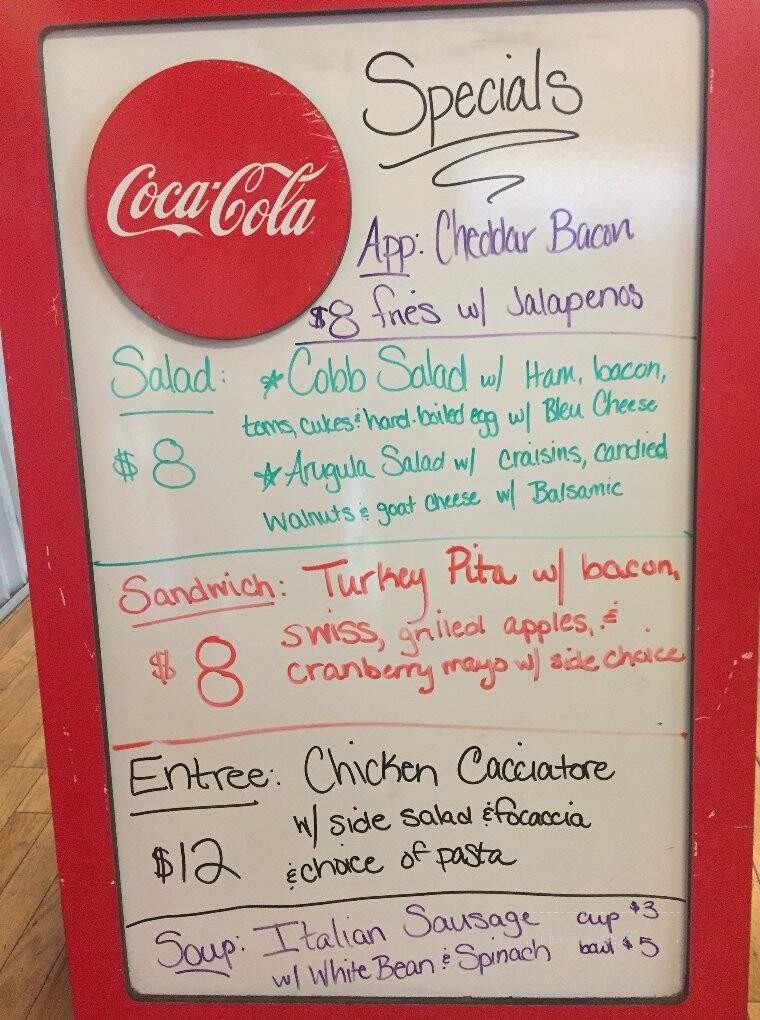 Coca-Cola
Specials
App: Cheddar Bacon
$8 fries w/ Jalapenos
Salad: * Cobb Salad w/ Ham, bacon,
toms, cukes & hard-boiled egg w/ Bleu Cheese
$8 * Arugula Salad w/ craisins, candied
Walnuts & goat cheese w/ Balsamic
Sandwich: Turkey Pita w/ bacon,
swiss, grilled apples, &
$8 cranberry mayo w/ side choice
Entree: Chicken Cacciatore
w/ side salad & focaccia
$12 & choice of pasta
Soup: Italian Sausage cup $3
w/ White Bean & Spinach bowl $5